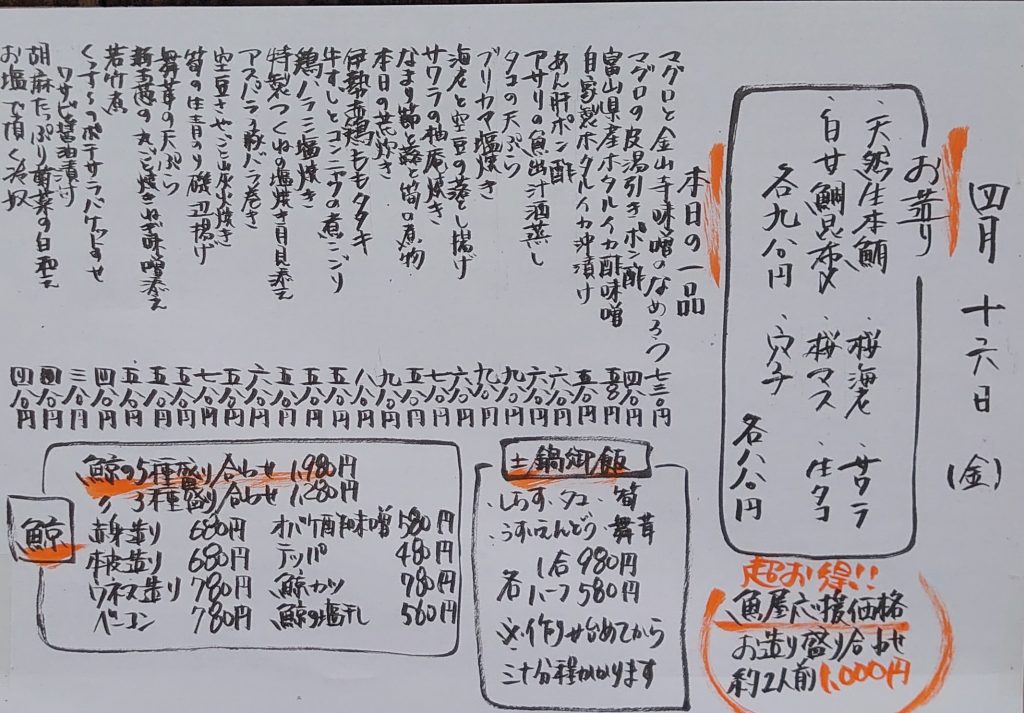 四月 十六日 (金)
お造り
・天然生本鮪 ・桜海老 ・サワラ
・白甘鯛昆布〆 ・桜マス ・生タコ
各九八〇円 ・穴子 各八八〇円
本日の一品
マグロと金山寺味噌のなめろう 七三〇円
マグロの皮湯引きポン酢 四八〇円
富山県産ホタルイカ酢味噌
自家製ホタルイカ沖漬け 五八〇円
あん肝ポン酢 六八〇円
アサリの魚出汁酒蒸し 六八〇円
タコの天ぷら 九八〇円
ブリカマ塩焼き 九八〇円
海老と空豆の落とし揚げ 六八〇円
サワラの柚庵焼き 七八〇円
なまり節と蕗と筍の煮物 九八〇円
本日の荒炊き 八八〇円
伊勢赤鶏ももタタキ 五八〇円
牛すじとコンニャクの煮こごり 五八〇円
鶏ハラミ塩焼き 五八〇円
特製つくねの塩焼き月見添え 六八〇円
アスパラの豚バラ巻き 五八〇円
空豆さやごと炭火焼き 七八〇円
筍の生青のり磯辺揚げ 五八〇円
舞茸の天ぷら 五八〇円
新玉葱の丸ごと焼きねぎ味噌添え 五八〇円
若竹煮 四八〇円
ポテサラバケット 三八〇円
ワサビ醤油漬け
胡麻たっぷり菊菜の白和え 四八〇円
お塩で頂く冷奴 四八〇円
超お得!!
魚屋応援価格
お造り盛り合わせ
約2人前1,000円
土鍋御飯
・しらす・タコ・筍
・うすいえんどう・舞茸
各 1合 980円
ハーフ 580円
※作り始めてから
三十分程かかります
鯨
鯨の5種盛り合わせ 1,980円
〃 3種盛り合わせ 1,280円
赤身造り 680円 オバケ酢味噌 580円
本皮造り 680円 テッパ 480円
ウネス造り 780円 鯨カツ 780円
ベーコン 780円 鯨の塩干し 560円